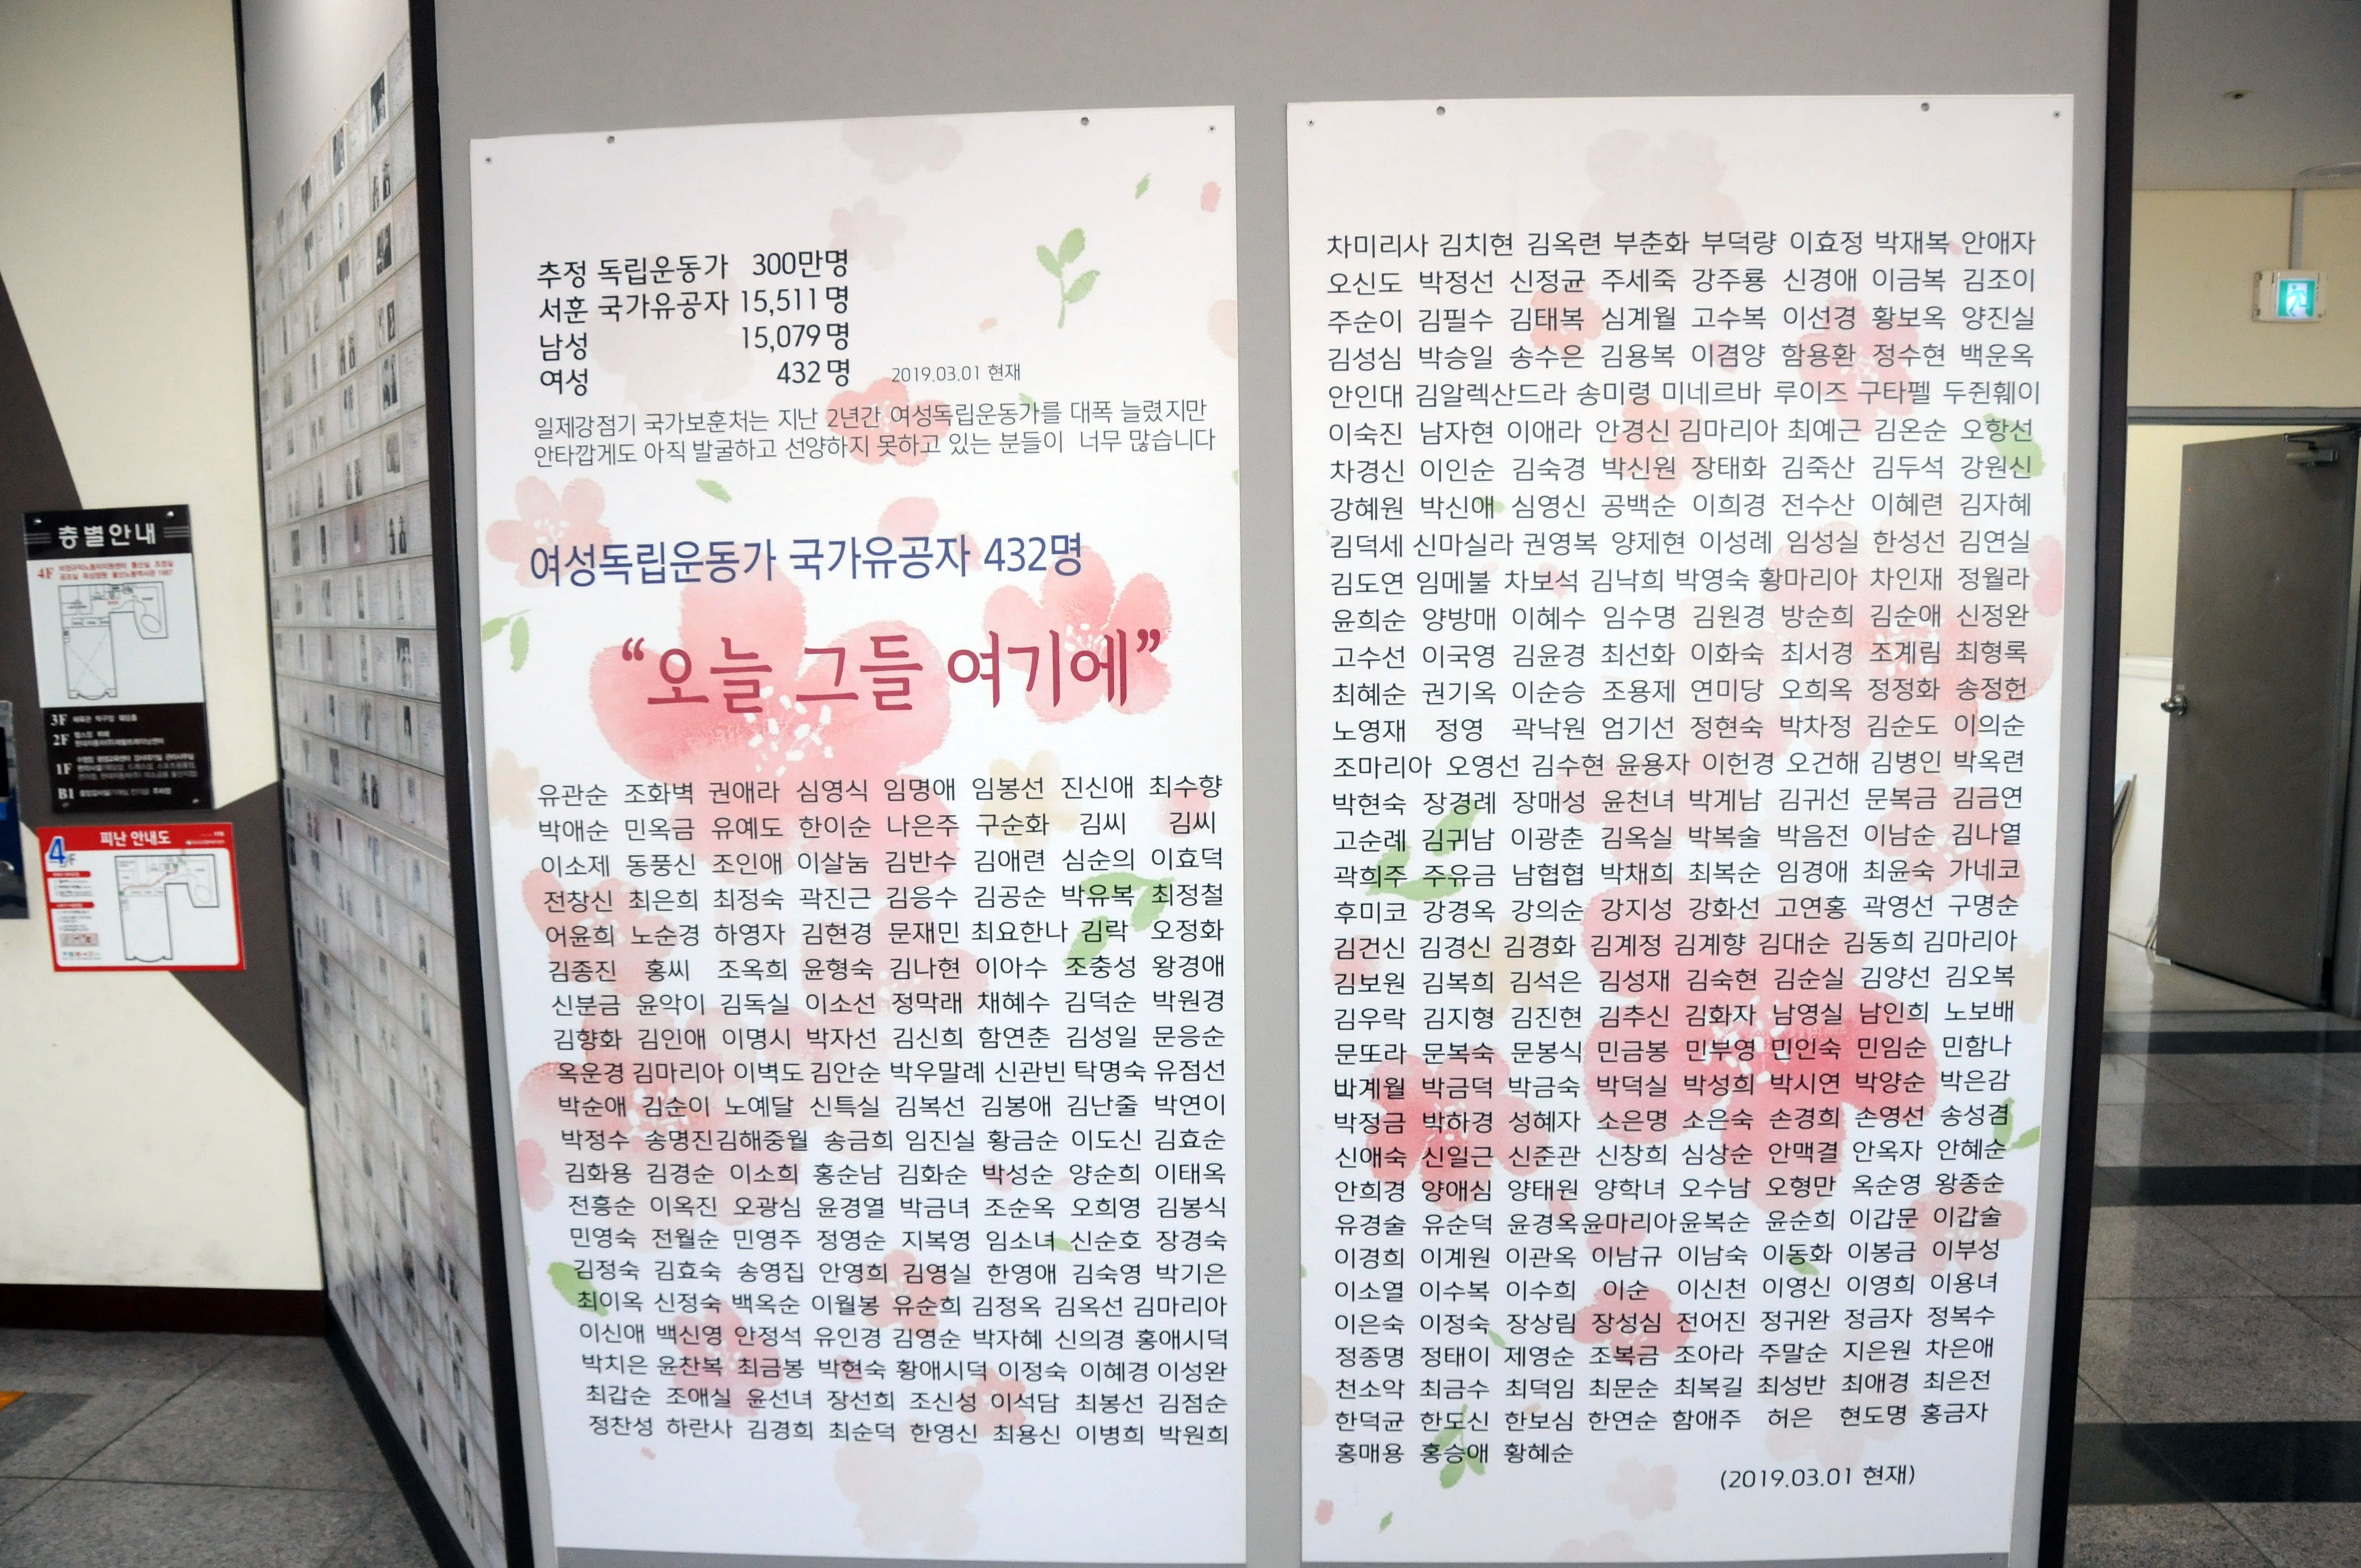 층별안내
4F
3F
2F
1F
B1
피난 안내도
4/F
추정 독립운동가 300만명
서훈 국가유공자 15,511명
남성 15,079명
여성 432명 2019.03.01 현재
일제강점기 국가보훈처는 지난 2년간 여성독립운동가를 대폭 늘렸지만
안타깝게도 아직 발굴하고 선양하지 못하고 있는 분들이 너무 많습니다
여성독립운동가 국가유공자 432명
“오늘 그들 여기에”
유관순 조화벽 권애라 심영식 임명애 임봉선 진신애 최수향
박애순 민옥금 유예도 한이순 나은주 구순화 김씨 김씨
이소제 동풍신 조인애 이살눔 김반수 김애련 심순의 이효덕
전창신 최은희 최정숙 곽진근 김응수 김공순 박유복 최정철
어윤희 노순경 하영자 김현경 문재민 최요한나 김락 오정화
김종진 홍씨 조옥희 윤형숙 김나현 이아수 조충성 왕경애
신분금 윤악이 김독실 이소선 정막래 채혜수 김덕순 박원경
김향화 김인애 이명시 박자선 김신희 함연춘 김성일 문응순
옥운경 김마리아 이벽도 김안순 박우말례 신관빈 탁명숙 유점선
박순애 김순이 노예달 신특실 김복선 김봉애 김난줄 박연이
박정수 송명진 김해중월 송금희 임진실 황금순 이도신 김효순
김화용 김경순 이소희 홍순남 김화순 박성순 양순희 이태옥
전흥순 이옥진 오광심 윤경열 박금녀 조순옥 오희영 김봉식
민영숙 전월순 민영주 정영순 지복영 임소녀 신순호 장경숙
김정숙 김효숙 송영집 안영희 김영실 한영애 김숙영 박기은
최이옥 신정숙 백옥순 이월봉 유순희 김정옥 김옥선 김마리아
이신애 백신영 안정석 유인경 김영순 박자혜 신의경 홍애시덕
박치은 윤찬복 최금봉 박현숙 황애시덕 이정숙 이혜경 이성완
최갑순 조애실 윤선녀 장선희 조신성 이석담 최봉선 김점순
정찬성 하란사 김경희 최순덕 한영신 최용신 이병희 박원희
차미리사 김치현 김옥련 부춘화 부덕량 이효정 박재복 안애자
오신도 박정선 신정균 주세죽 강주룡 신경애 이금복 김조이
주순이 김필수 김태복 심계월 고수복 이선경 황보옥 양진실
김성심 박승일 송수은 김용복 이겸양 함용환 정수현 백운옥
안인대 김알렉산드라 송미령 미네르바 루이즈 구타펠 두쥔훼이
이숙진 남자현 이애라 안경신 김마리아 최예근 김온순 오항선
차경신 이인순 김숙경 박신원 장태화 김죽산 김두석 강원신
강혜원 박신애 심영신 공백순 이희경 전수산 이혜련 김자혜
김덕세 신마실라 권영복 양제현 이성례 임성실 한성선 김연실
김도연 임메불 차보석 김낙희 박영숙 황마리아 차인재 정월라
윤희순 양방매 이혜수 임수명 김원경 방순희 김순애 신정완
고수선 이국영 김윤경 최선화 이화숙 최서경 조계림 최형록
최혜순 권기옥 이순승 조용제 연미당 오희옥 정정화 송정헌
노영재 정영 곽낙원 엄기선 정현숙 박차정 김순도 이의순
조마리아 오영선 김수현 윤용자 이헌경 오건해 김병인 박옥련
박현숙 장경례 장매성 윤천녀 박계남 김귀선 문복금 김금연
고순례 김귀남 이광춘 김옥실 박복술 박음전 이남순 김나열
곽희주 주유금 남협협 박채희 최복순 임경애 최윤숙 가네코
후미코 강경옥 강의순 강지성 강화선 고연홍 곽영선 구명순
김건신 김경신 김경화 김계정 김계향 김대순 김동희 김마리아
김보원 김복희 김석은 김성재 김숙현 김순실 김양선 김오복
김우락 김지형 김진현 김추신 김화자 남영실 남인희 노보배
문또라 문복숙 문봉식 민금봉 민부영 민인숙 민임순 민함나
바계월 박금덕 박금숙 박덕실 박성희 박시연 박양순 박은감
박정금 박하경 성혜자 소은명 소은숙 손경희 손영선 송성겸
신애숙 신일근 신준관 신창희 심상순 안맥결 안옥자 안혜순
안희경 양애심 양태원 양학녀 오수남 오형만 옥순영 왕종순
유경술 유순덕 윤경옥 윤마리아 윤복순 윤순희 이갑문 이갑술
이경희 이계원 이관옥 이남규 이남숙 이동화 이봉금 이부성
이소열 이수복 이수희 이순 이신천 이영신 이영희 이용녀
이은숙 이정숙 장상림 장성심 전어진 정귀완 정금자 정복수
정종명 정태이 제영순 조복금 조아라 주말순 지은원 차은애
천소악 최금수 최덕임 최문순 최복길 최성반 최애경 최은전
한덕균 한도신 한보심 한연순 함애주 허은 현도명 홍금자
홍매용 홍승애 황혜순
(2019.03.01 현재)